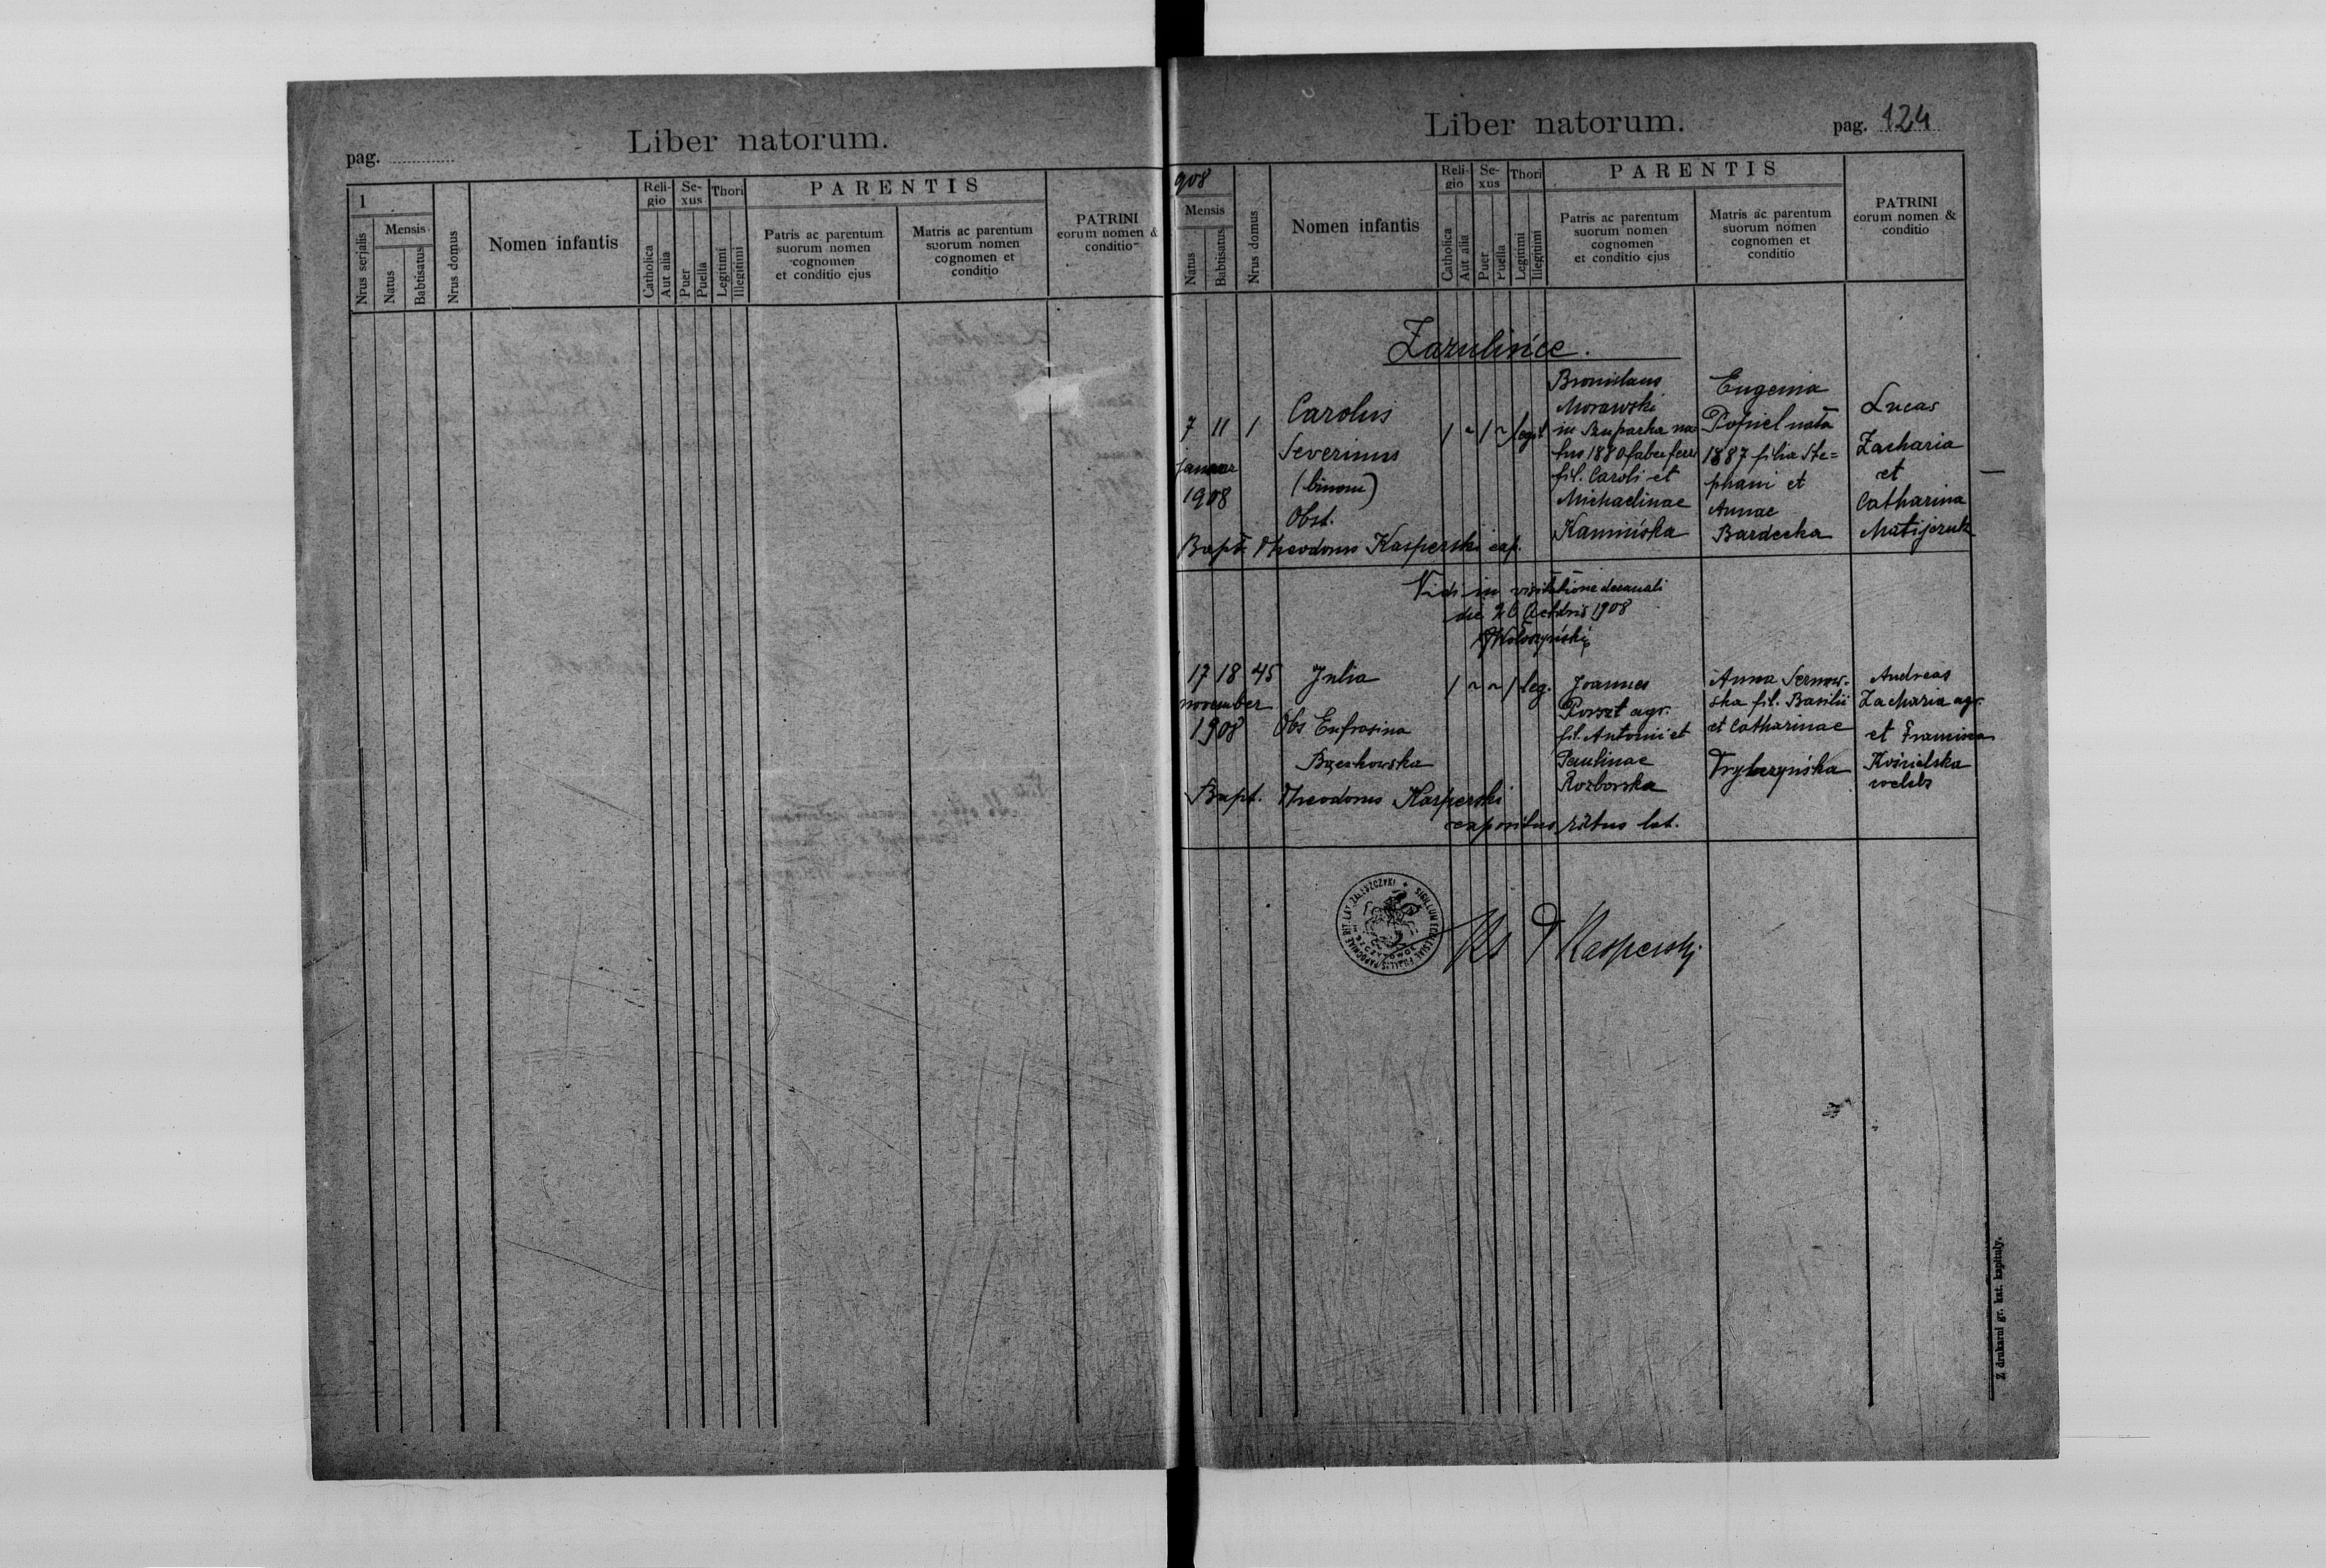 pag.
Liber natorum.
1
Nrus serjalis
Mensis
Natus
Babtisatus
Nrus domus
Nomen infantis
Reli-
gio
Catholica
Aut alia
Se-
xus
Puer
Puella
Thori
Legitimi
Illegitimi
PARENTIS
Patris ac parentum
suorum nomen
cognomen
et conditio ejus
Matris ac parentum
suorum nomen
cognomen et
conditio
PATRINI
eorum nomen &
conditio
Liber natorum.
pag. 124
908
Mensis
Natus
Babtisatus
Nrus domus
Nomen infantis
Reli-
gio
Catholica
Aut alia
Se-
xus
Puer
Puella
Thori
Legitimi
Illegitimi
PARENTIS
Patris ac parentum
suorum nomen
cognomen
et conditio ejus
Matris ac parentum
suorum nomen
cognomen et
conditio
PATRINI
eorum nomen &
conditio
Zazulińce.
7 11 1
Januar
1908
Carolus
Severinus
(binom)
Obst.
1 ~ 1 ~ legit
Bronislaus
Morawski
in Szuparka na
tus 1880 faber ferri
fil. Caroli et
Michaelinae
Kamińska
Eugenia
Popiel nata
1887 filia Ste=
phani et
Annae
Bardecka
Lucas
Zacharia
et
Catharina
Matijczuk
Bapt. Theodorus Kasperski exp.
Vidi in visitatione decanali
die 26 Octobris 1908
17 18 45
november
1908
Julia
Obs Eufrosina
1 ~ ~ 1 leg.
Joannes
agr.
fil. Antonii et
Paulinae
Rozborska
Anna Sernow-
ska fil. Basilii
et Catharinae
Andreas
Zacharia agr.
et Francisca
Bapt. Theodorus Kasperski
expositus ritus lat.
SIGILLUM ECCLESIAE FILIALIS PAROCHIAE RIT. LAT. ZALESZCZYKI
Ks T Kasperski
Z drukarni gr. kat. kapituły.